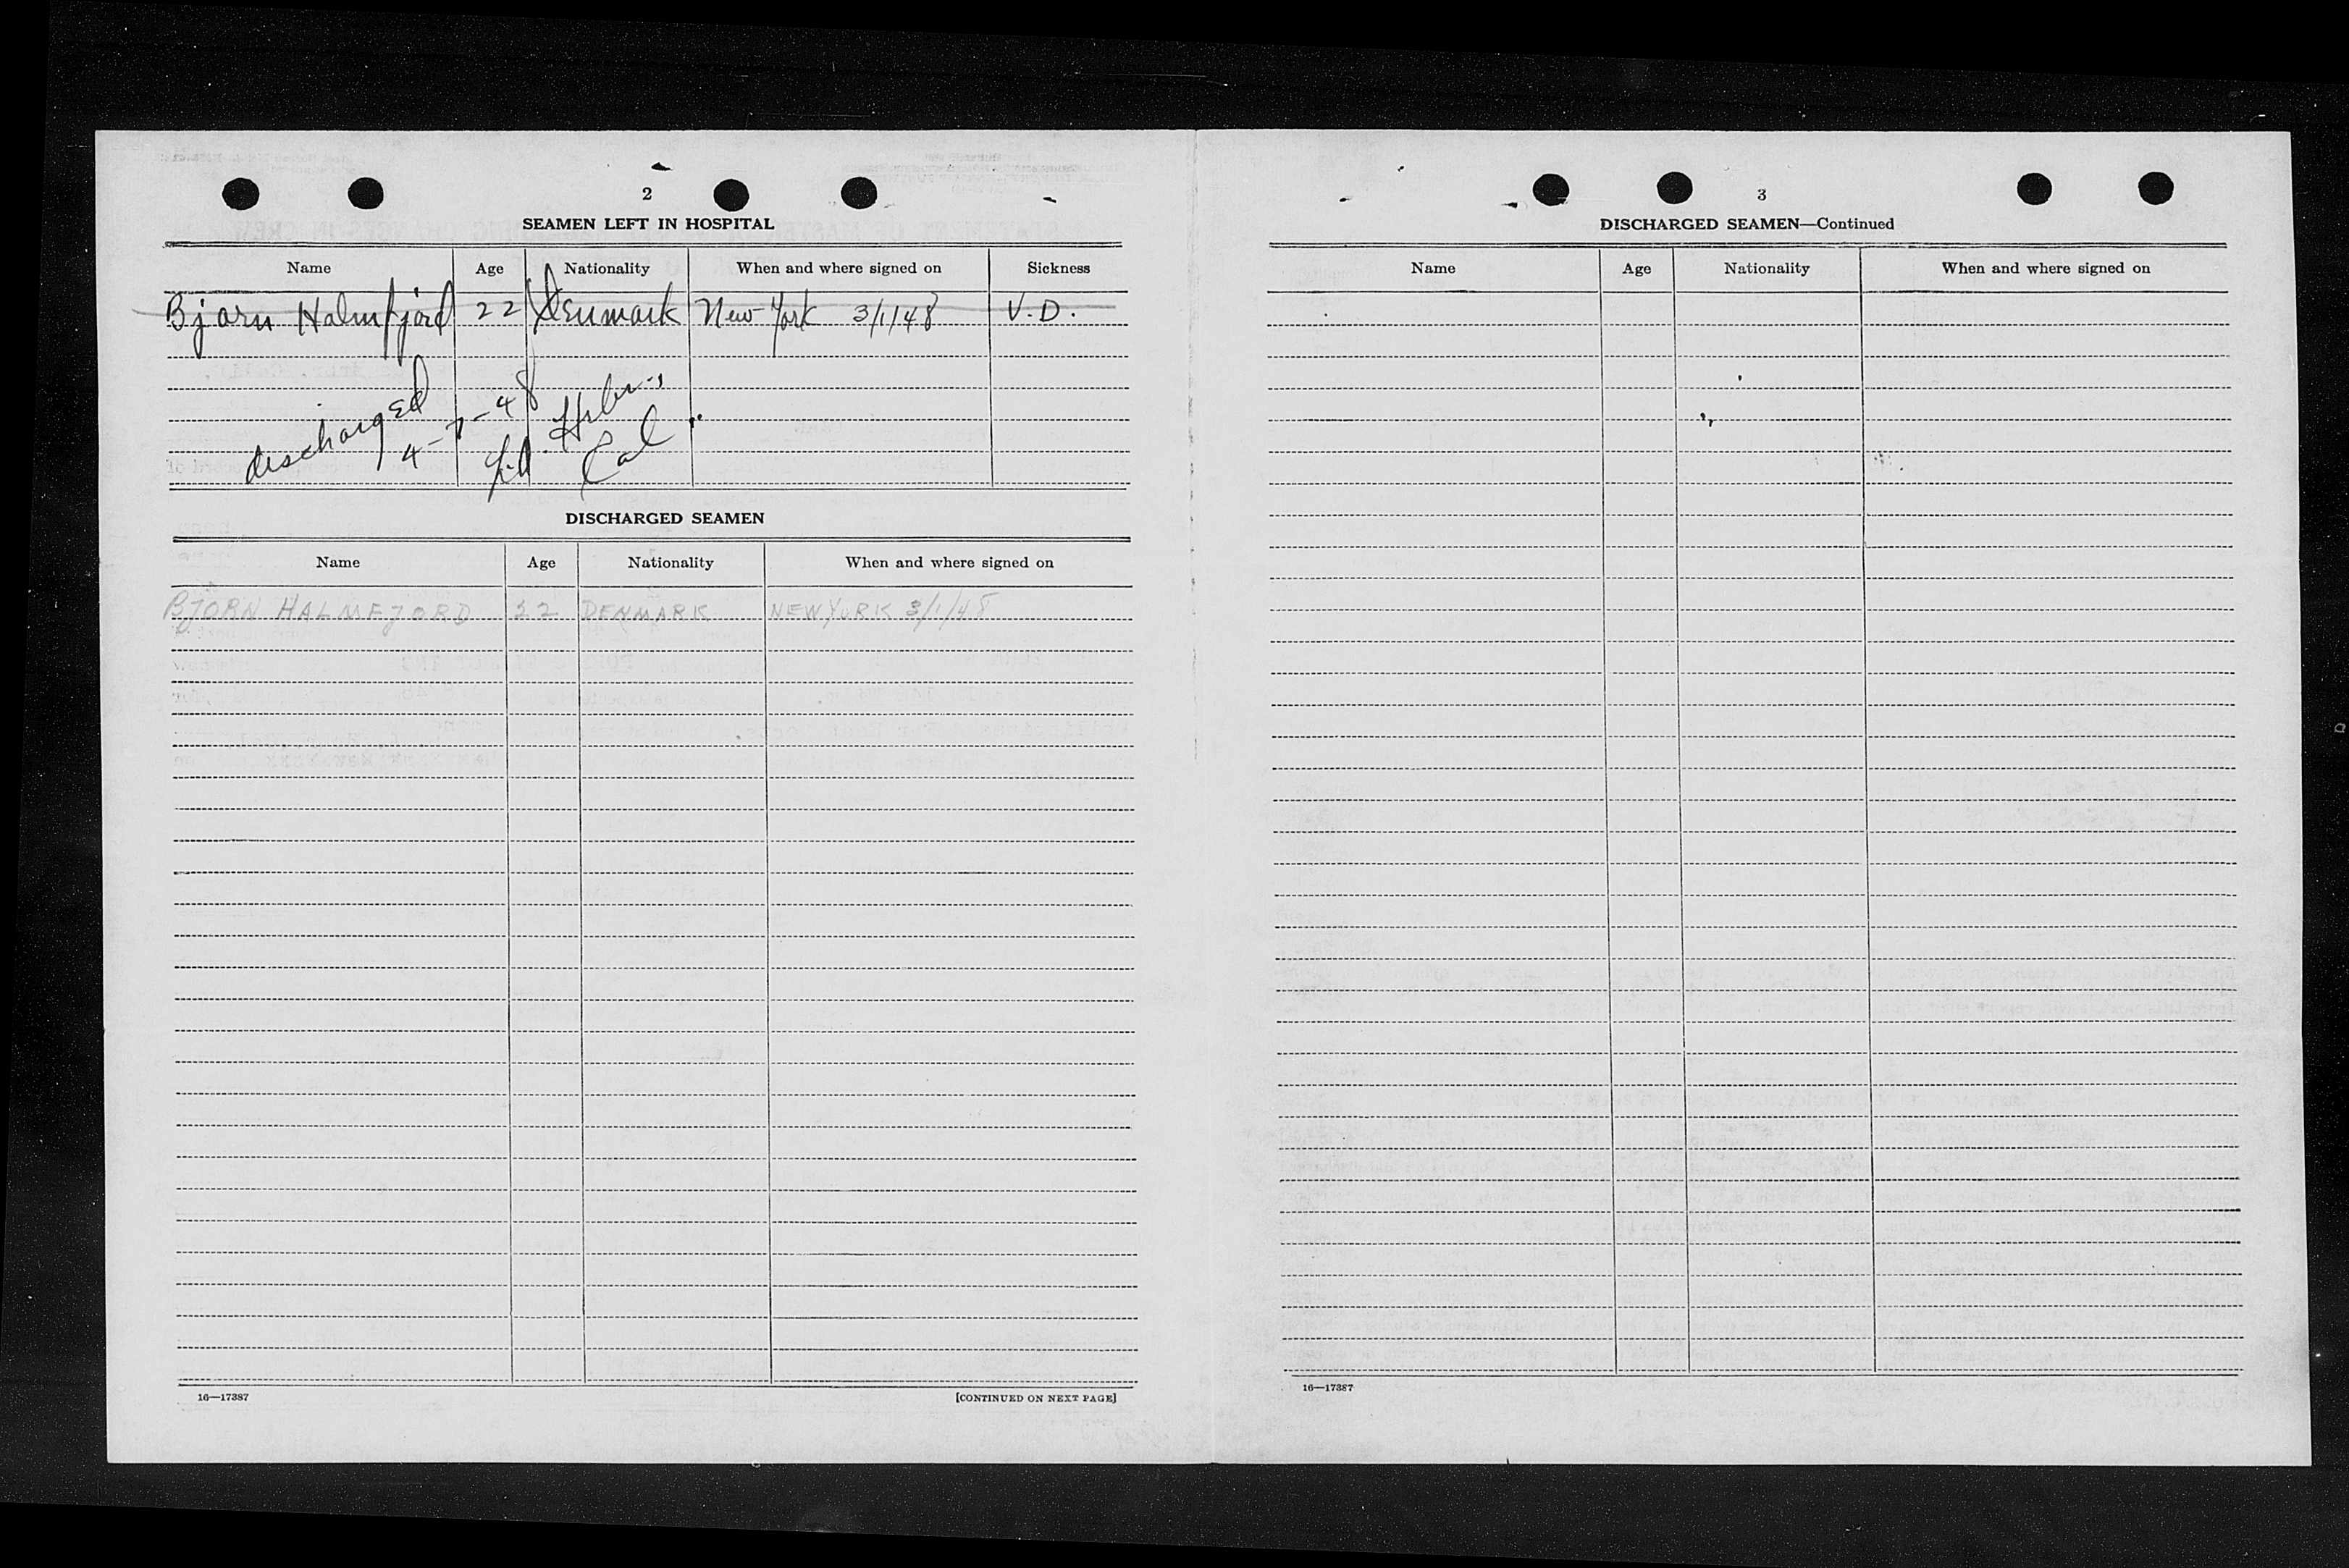 2
SEAMEN LEFT IN HOSPITAL
Name Age Nationality When and where signed on Sickness
Bjorn Halmfjord 22 Denmark New York 3/1/48 V.D.
discharged
4-7-48
Cal
DISCHARGED SEAMEN
Name Age Nationality When and where signed on
BJORN HALMFJORD 22 DENMARK NEW YORK 3/1/48
16—17387 [CONTINUED ON NEXT PAGE]
3
DISCHARGED SEAMEN—Continued
Name Age Nationality When and where signed on
16—17387